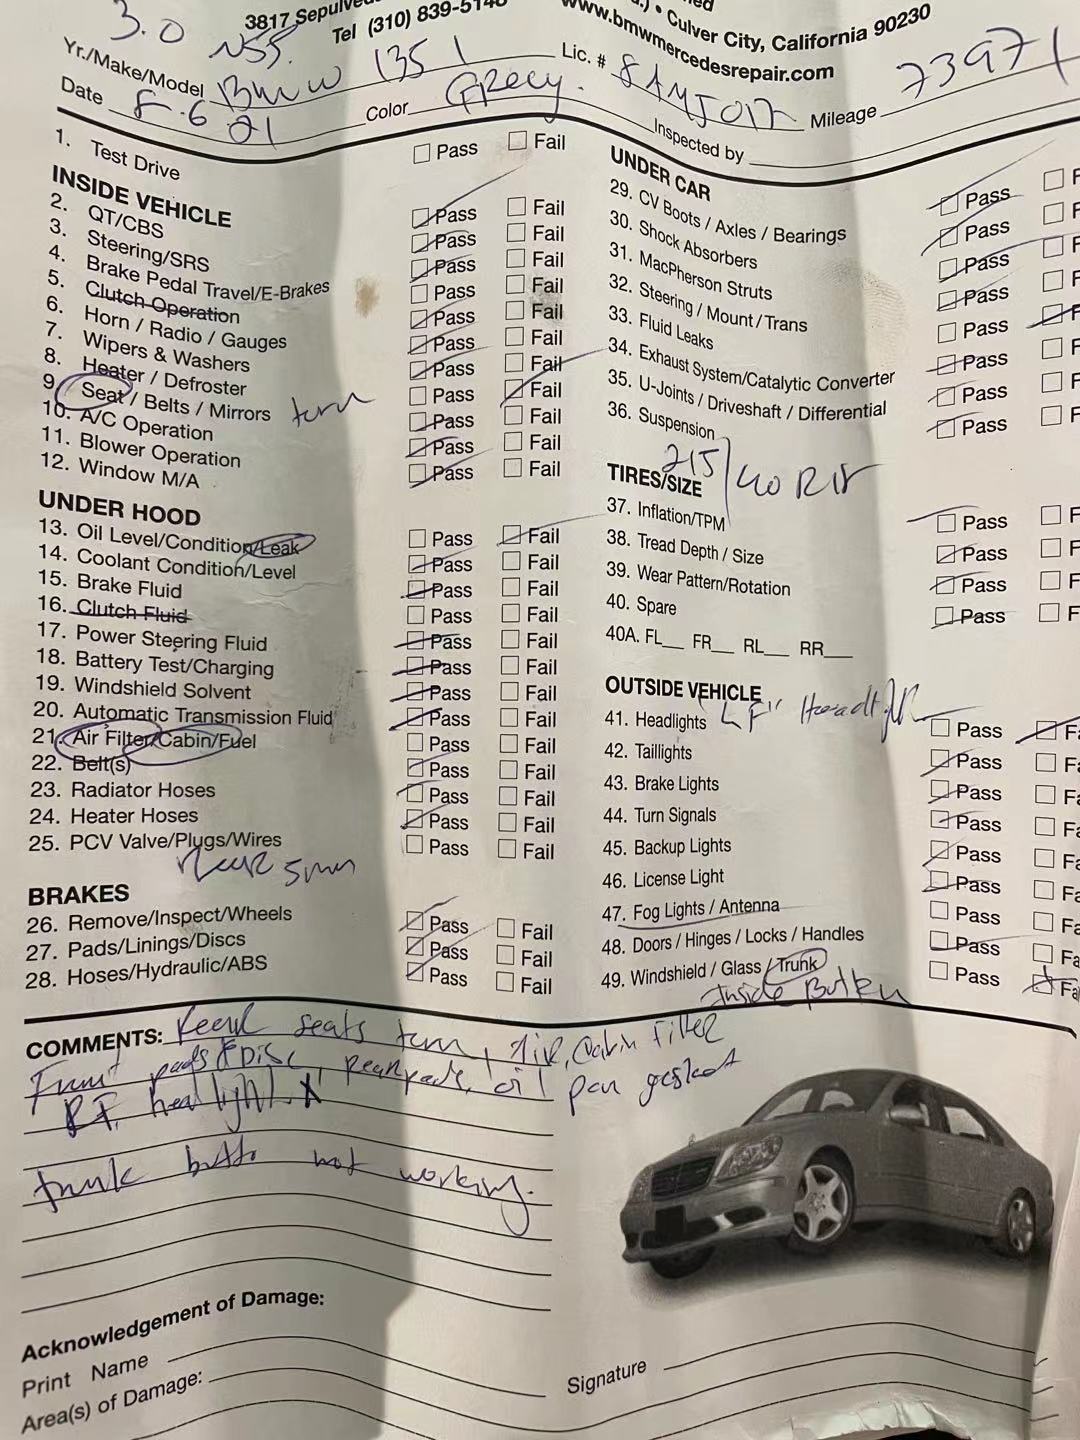 3817 Sepulve
Tel (310) 839-5148
) • Culver City, California 90230
www.bmwmercedesrepair.com
3.0 N55.
Yr./Make/Model BMW 135 I
Lic. # 8AMJ017
Mileage 73971
Date 8-6 21
Color Grey.
Inspected by
1. Test Drive Pass Fail
INSIDE VEHICLE
2. QT/CBS Pass Fail
3. Steering/SRS Pass Fail
4. Brake Pedal Travel/E-Brakes Pass Fail
5. Clutch Operation Pass Fail
6. Horn / Radio / Gauges Pass Fail
7. Wipers & Washers Pass Fail
8. Heater / Defroster Pass Fail
9. Seat / Belts / Mirrors torn Pass Fail
10. A/C Operation Pass Fail
11. Blower Operation Pass Fail
12. Window M/A Pass Fail
UNDER HOOD
13. Oil Level/Condition/Leak Pass Fail
14. Coolant Condition/Level Pass Fail
15. Brake Fluid Pass Fail
16. Clutch Fluid Pass Fail
17. Power Steering Fluid Pass Fail
18. Battery Test/Charging Pass Fail
19. Windshield Solvent Pass Fail
20. Automatic Transmission Fluid Pass Fail
21. Air Filter/Cabin/Fuel Pass Fail
22. Belt(s) Pass Fail
23. Radiator Hoses Pass Fail
24. Heater Hoses Pass Fail
25. PCV Valve/Plugs/Wires Pass Fail
Rear 5mm
BRAKES
26. Remove/Inspect/Wheels Pass Fail
27. Pads/Linings/Discs Pass Fail
28. Hoses/Hydraulic/ABS Pass Fail
UNDER CAR
29. CV Boots / Axles / Bearings Pass F
30. Shock Absorbers Pass F
31. MacPherson Struts Pass F
32. Steering / Mount / Trans Pass F
33. Fluid Leaks Pass F
34. Exhaust System/Catalytic Converter Pass F
35. U-Joints / Driveshaft / Differential Pass F
36. Suspension Pass F
215/40 R18
TIRES/SIZE
37. Inflation/TPM Pass F
38. Tread Depth / Size Pass F
39. Wear Pattern/Rotation Pass F
40. Spare Pass F
40A. FL__ FR__ RL__ RR__
OUTSIDE VEHICLE
41. Headlights LF" Headlight Pass Fa
42. Taillights Pass Fa
43. Brake Lights Pass Fa
44. Turn Signals Pass Fa
45. Backup Lights Pass Fa
46. License Light Pass Fa
47. Fog Lights / Antenna Pass Fa
48. Doors / Hinges / Locks / Handles Pass Fa
49. Windshield / Glass / Trunk Pass Fa
Inside Button
COMMENTS: Rear seats torn, Air, Cabin Filter
Front pads & Disc, Rear pads, oil pan gasket
headlight
trunk button not working.
Acknowledgement of Damage:
Print Name
Area(s) of Damage:
Signature